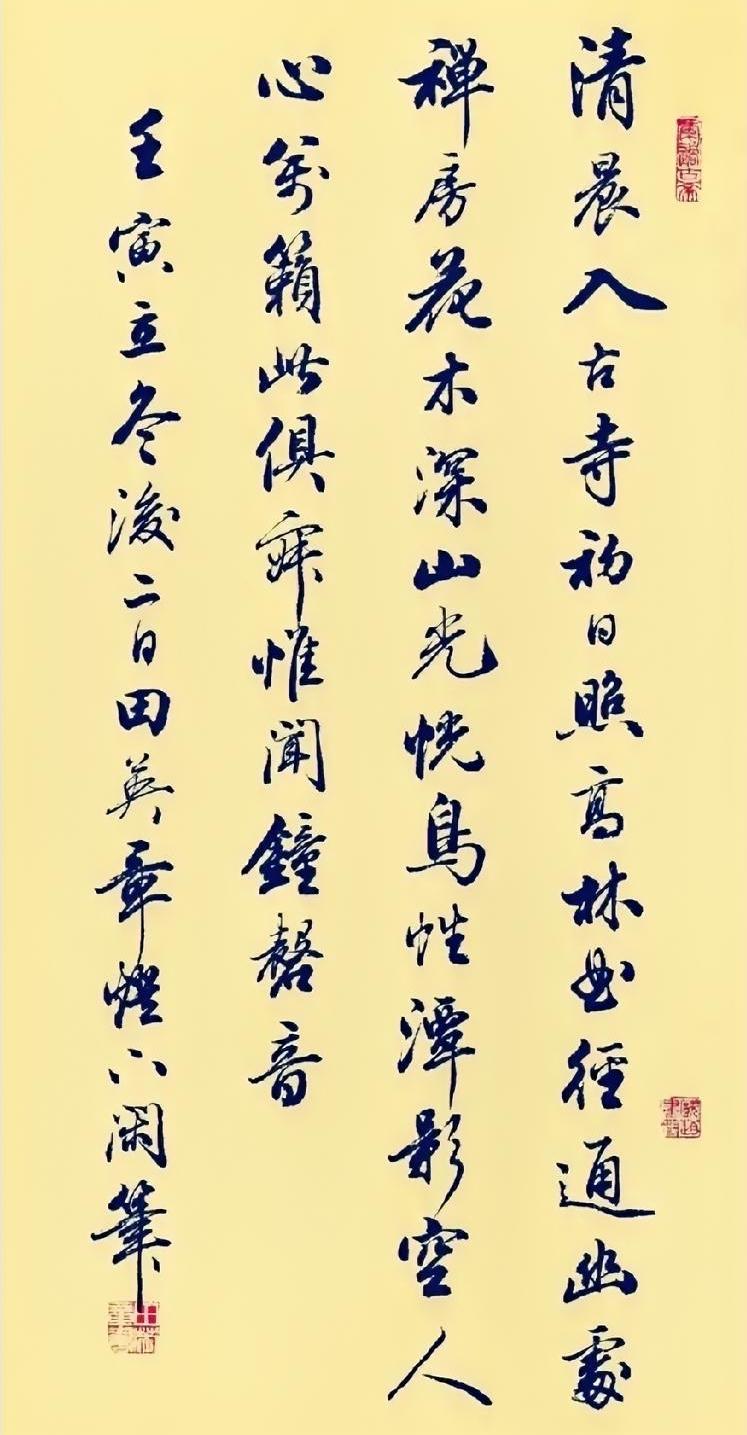 清晨入古寺初日照高林曲径通幽處
禅房花木深山光悦鳥性潭影空人
心万籟此俱寂惟聞鐘磬音
壬寅立冬後二日田英章燈下闲筆